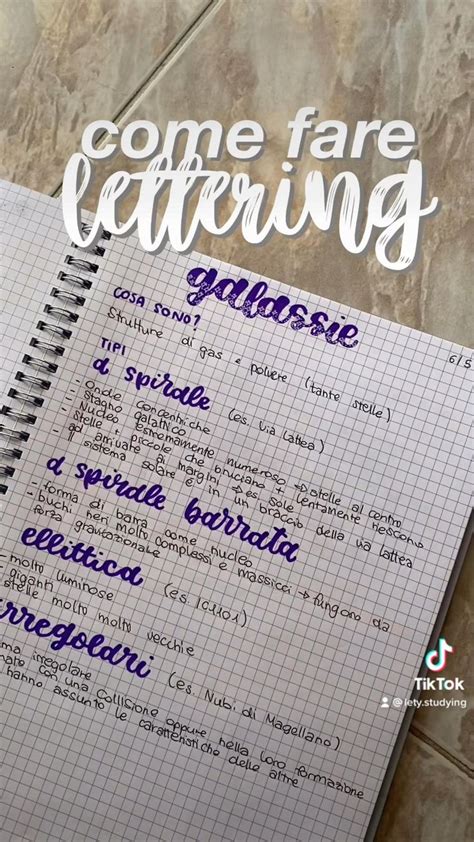 come fare
lettering
galassie
6/5
COSA SONO?
Strutture di gas e polvere (tante stelle)
TIPI
a spirale (es. Via Lattea)
- Onde concentriche
- Stagno galattico
- Nucleo estremamente numeroso → stelle al centro
- Stelle + piccole che bruciano + lentamente riescono
ad arrivare ai margini → es sole
Il sistema solare è in un braccio della via lattea
a spirale barrata
- forma di barra come nucleo
- buchi neri molto complessi e massicci → fungono da
forza gravitazionale
ellittica (es. IC1101)
- molto luminose
giganti
stelle molto molto vecchie
irregolari (es. Nubi di Magellano)
irregolare
con una collisione oppure nella loro formazione
hanno assunto le caratteristiche delle altre
TikTok
@lety.studying